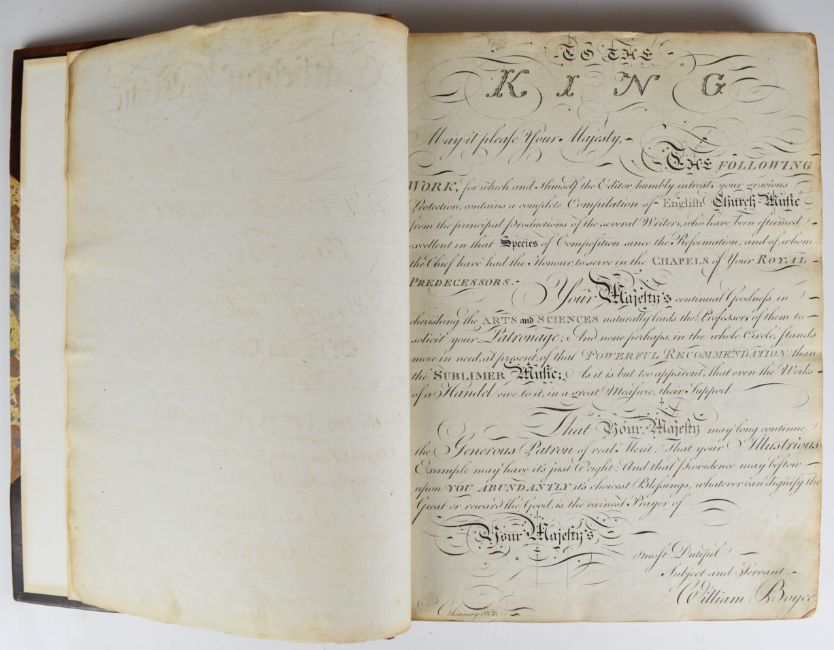 TO THE
KING
May it please Your Majesty,
THE FOLLOWING
WORK, for which and Himself, the Editor humbly intreats your gracious
Protection, contains a complete Compilation of English Church-Music
from the principal Productions of the several Writers, who have been esteemed
excellent in that Species of Composition since the Reformation, and of whom
the Chief have had the Honour to serve in the CHAPELS of Your ROYAL
PREDECESSORS.
Your Majesty's continual Goodness in
cherishing the ARTS and SCIENCES naturally leads the Professors of them to
solicit your Patronage; And none perhaps, in the whole Circle, stands
more in need, at present, of that POWERFUL RECOMMENDATION than
the SUBLIMER Music; As it is but too apparent, that even the Works
of a Handel owe to it, in a great Measure, their Support.
That Your Majesty may long continue
the Generous Patron of real Merit; That your Illustrious
Example may have its just Weight; And that Providence may bestow
upon YOU ABUNDANTLY its choicest Blessings, whatever can dignify the
Great or reward the Good, is the earnest Prayer of
Your Majesty's
most Dutiful
Subject and Servant
William Boyce.